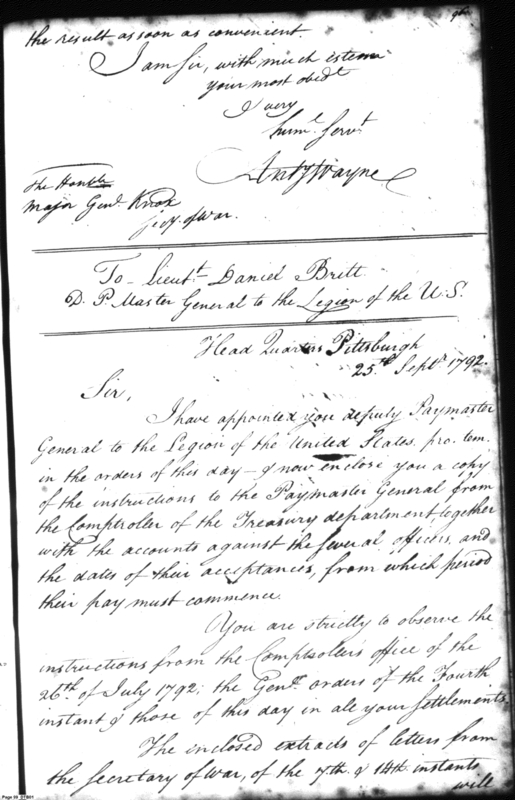 96.
the result as soon as convenient.
I am Sir, with much esteem
your most obedt
& very
huml. Servt
Anty Wayne
The Honble
Major Genl. Knox
Secy. of War.
To Lieutt Daniel Britt
D. P. Master General to the Legion of the U.S.
Head Quarters Pittsburgh
25th. Septr. 1792.
Sir,
I have appointed you deputy Paymaster
General to the Legion of the United States, pro. tem.
in the orders of this day — & now enclose you a copy
of the instructions to the Paymaster General from
the Comptroller of the Treasury department, together
with the accounts against the several officers, and
the dates of their acceptances, from which period
their pay must commence.
You are strictly to observe the
instructions from the Comptsoller's office of the
26th. of July 1792; the Genl. orders of the Fourth
instant & those of this day in all your settlements.
The enclosed extracts of letters from
the Secretary of War, of the 7th. & 14th. instants
will
Page 39 DTB01